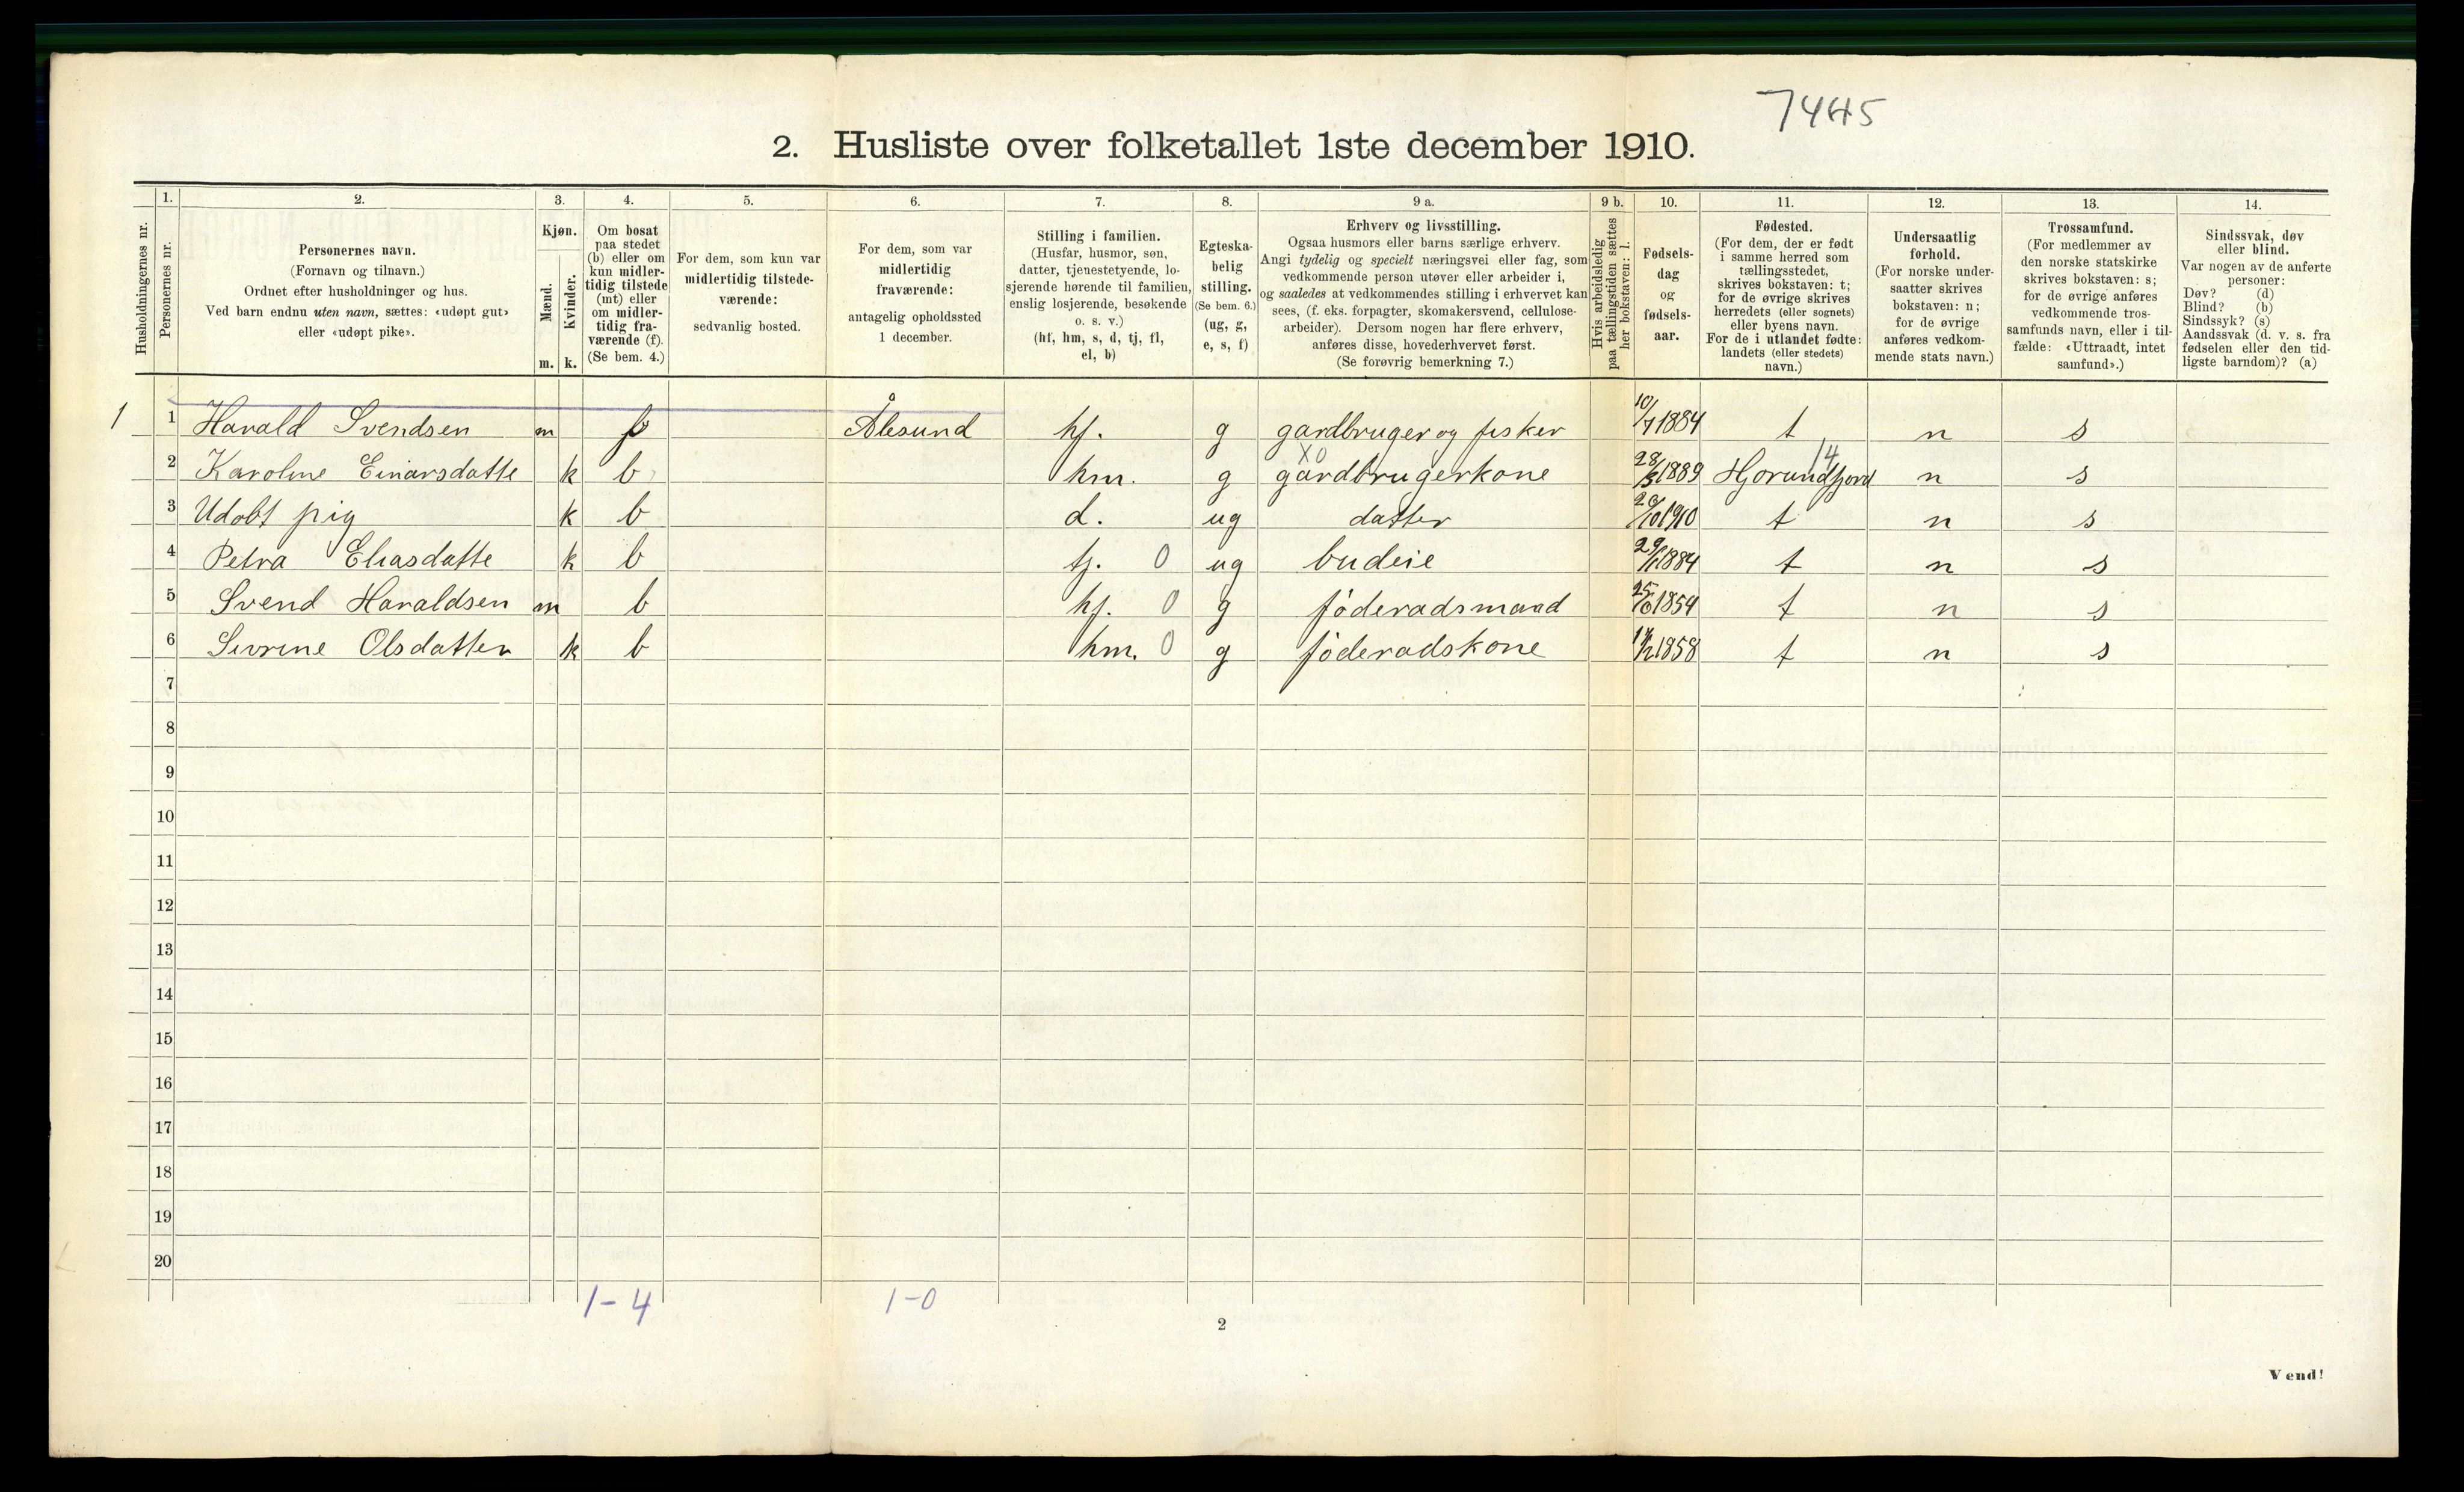 7445
2. Husliste over folketallet 1ste december 1910.
Husholdningernes nr.
1. Personernes nr.
2. Personernes navn.
(Fornavn og tilnavn.)
Ordnet efter husholdninger og hus.
Ved barn endnu uten navn, sættes: «udøpt gut»
eller «udøpt pike».
3. Kjøn.
Mænd. m.
Kvinder. k.
4. Om bosat
paa stedet
(b) eller om
kun midler-
tidig tilstede
(mt) eller
om midler-
tidig fra-
værende (f).
(Se bem. 4.)
5. For dem, som kun var
midlertidig tilstede-
værende:
sedvanlig bosted.
6. For dem, som var
midlertidig
fraværende:
antagelig opholdssted
1 december.
7. Stilling i familien.
(Husfar, husmor, søn,
datter, tjenestetyende, lo-
sjerende hørende til familien,
enslig losjerende, besøkende
o. s. v.)
(hf, hm, s, d, tj, fl,
el, b)
8. Egteska-
belig
stilling.
(Se bem. 6.)
(ug, g,
e, s, f)
9 a. Erhverv og livsstilling.
Ogsaa husmors eller barns særlige erhverv.
Angi tydelig og specielt næringsvei eller fag, som
vedkommende person utøver eller arbeider i,
og saaledes at vedkommendes stilling i erhvervet kan
sees, (f. eks. forpagter, skomakersvend, cellulose-
arbeider). Dersom nogen har flere erhverv,
anføres disse, hovederhvervet først.
(Se forøvrig bemerkning 7.)
9 b. Hvis arbeidsledig
paa tællingstiden sættes
her bokstaven: l.
10. Fødsels-
dag
og
fødsels-
aar.
11. Fødested.
(For dem, der er født
i samme herred som
tællingsstedet,
skrives bokstaven: t;
for de øvrige skrives
herredets (eller sognets)
eller byens navn.
For de i utlandet fødte:
landets (eller stedets)
navn.)
12. Undersaatlig
forhold.
(For norske under-
saatter skrives
bokstaven: n;
for de øvrige
anføres vedkom-
mende stats navn.)
13. Trossamfund.
(For medlemmer av
den norske statskirke
skrives bokstaven: s;
for de øvrige anføres
vedkommende tros-
samfunds navn, eller i til-
fælde: «Uttraadt, intet
samfund».)
14. Sindssvak, døv
eller blind.
Var nogen av de anførte
personer:
Døv? (d)
Blind? (b)
Sindssyk? (s)
Aandssvak (d. v. s. fra
fødselen eller den tid-
ligste barndom)? (a)
1 1 Harald Svendsen m f Ålesund hf. g gardbruger og fisker 10/7 1884 t n s
X0 14
2 Karoline Einarsdatte k b hm. g gardbrugerkone 28/3 1889 Hjorundfjord n s
3 Udobt pig k b d. ug datter 20/10 1910 t n s
4 Petra Eliasdatte k b tj. 0 ug budeie 29/11 1884 t n s
5 Svend Haraldsen m b hf. 0 g föderadsmand 25/10 1854 t n s
6 Sivrine Olsdatter k b hm. 0 g föderadskone 1858 t n s
7
8
9
10
11
12
13
14
15
16
17
18
19
20
1-4 1-0
2
Vend!